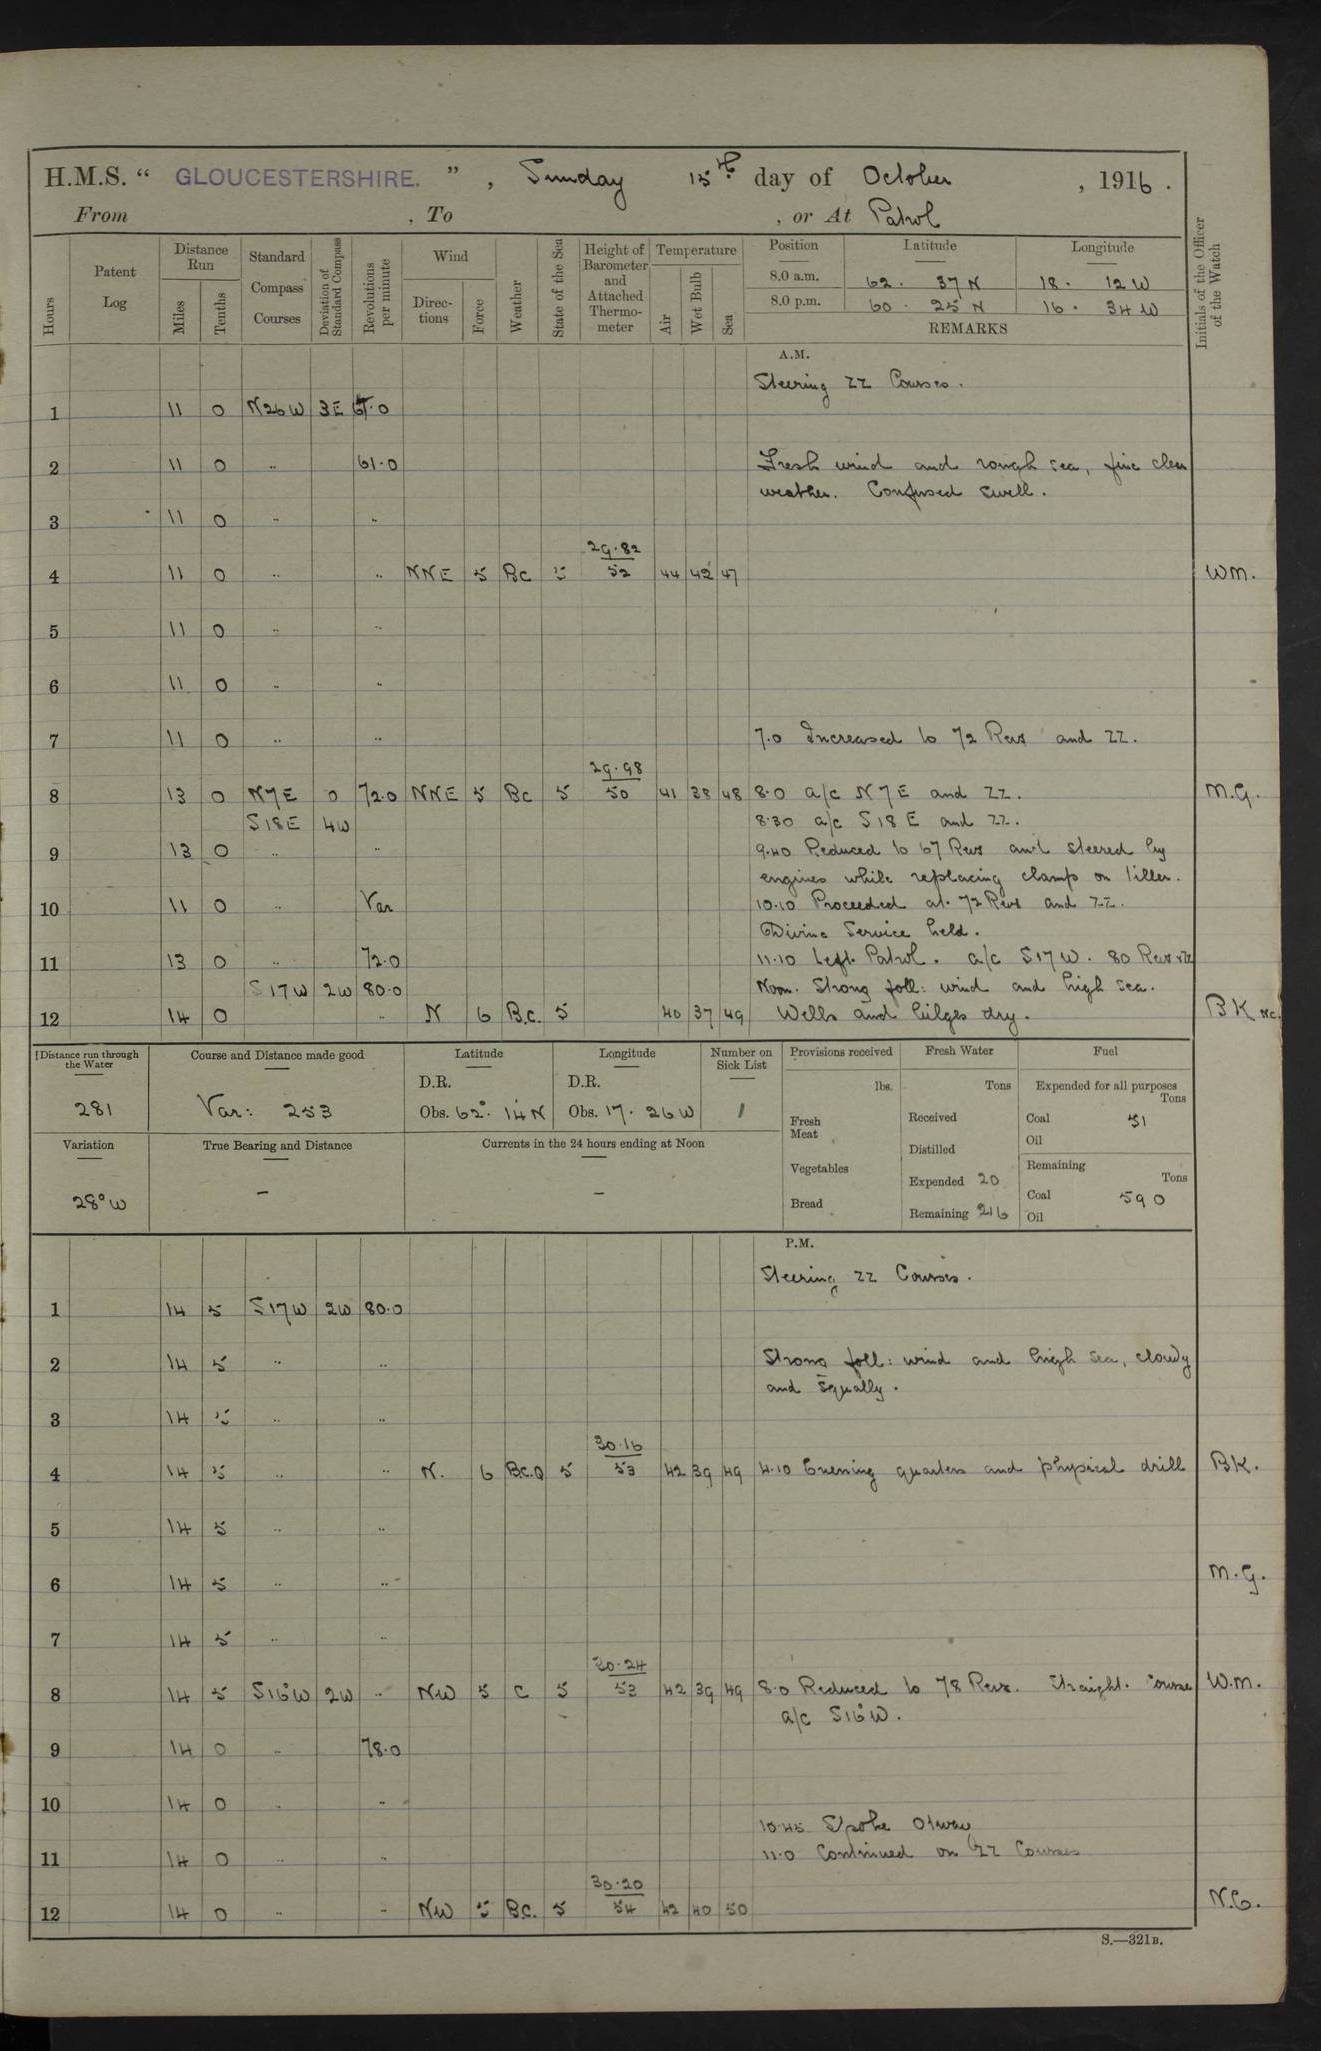 H.M.S. “ GLOUCESTERSHIRE. ” , Sunday 15th day of October , 1916 .
From , To , or At Patrol
Hours Patent Log Distance Run Miles Tenths Standard Compass Courses Deviation of Standard Compass Revolutions per minute Wind Directions Force Weather State of the Sea Height of Barometer and Attached Thermometer Temperature Air Wet Bulb Sea Position Latitude Longitude Initials of the Officer of the Watch
8.0 a.m. 62 . 37 N 18 . 12 W
8.0 p.m. 60 . 25 N 16 . 34 W
REMARKS
A.M.
Steering ZZ Courses .
1 11 0 N26W 3E
2 11 0 .. 61.0 Fresh wind and rough sea, fine clear
weather. Confused swell .
3 11 0 .. ..
29.82
4 11 0 .. .. NNE 5 Bc 5 52 44 42 47 WM.
5 11 0 .. ..
6 11 0 .. ..
7 11 0 .. .. 7.0 Increased to 72 Revs and ZZ .
29.98
8 13 0 N7E 0 72.0 NNE 5 Bc 5 50 41 38 48 8.0 a/c N7E and ZZ . M.G.
S18E 4W 8.30 a/c S18E and ZZ .
9 13 0 .. .. 9.40 Reduced to 67 Revs and steered by
engines while replacing clamp on tiller .
10 11 0 .. Var 10.10 Proceeded at 72 Revs and ZZ .
Divine Service held .
11 13 0 .. 72.0 11.10 Left Patrol . a/c S17W . 80 Revs ZZ
S17W 2W 80.0 Noon. Strong foll: wind and high sea .
12 14 0 .. N 6 B.c. 5 40 37 49 Wells and bilges dry . BK
Distance run through the Water Course and Distance made good Latitude Longitude Number on Sick List Provisions received Fresh Water Fuel
D.R. D.R. lbs. Tons Expended for all purposes Tons
281 Var: 253 Obs. 62° 14 N Obs. 17 . 26 W 1 Fresh Meat Received Coal 51
Oil
Variation True Bearing and Distance Currents in the 24 hours ending at Noon Distilled
Vegetables Remaining Tons
28° W – – Expended 20 Coal 590
Bread Remaining 216 Oil
P.M.
Steering ZZ Courses .
1 14 5 S17W 2W 80.0
2 14 5 .. .. Strong foll: wind and high sea, cloudy
and squally .
3 14 5 .. ..
30.16
4 14 5 .. .. N. 6 B.c.Q 5 53 42 39 49 4.10 Evening quarters and physical drill BK.
5 14 5 .. ..
6 14 5 .. .. M.G.
7 14 5 .. ..
30.24
8 14 5 S16W 2W .. NW 5 C 5 53 42 39 49 8.0 Reduced to 78 Revs. Straight course W.M.
a/c S16W .
9 14 0 .. 78.0
10 14 0 .. ..
10.45 Spoke Otway
11 14 0 .. .. 11.0 Continued on ZZ Courses
30.20
12 14 0 .. .. NW 5 B.C. 5 54 42 40 50 N.C.
S.—321B.